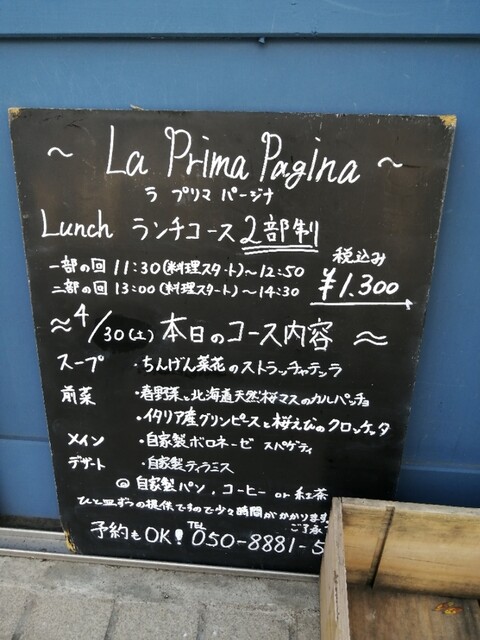 ～ La Prima Pagina ～
ラ プリマ パージナ
Lunch ランチコース 2部制
一部の回 11:30(料理スタート)～12:50
二部の回 13:00(料理スタート)～14:30
税込み
¥1.300
≈4/30(土) 本日のコース内容 ≈
スープ ・ちんげん菜花のストラッチャテッラ
前菜 ・春野菜と北海道天然桜マスのカルパッチョ
・イタリア産グリンピースと桜えびのクロッケッタ
メイン ・自家製ボロネーゼ スパゲティ
デザート ・自家製ティラミス
◎自家製パン,コーヒー or 紅茶
ひと皿ずつの提供ですので少々時間がかかります
ご了承
予約もOK! TEL 050-8881-5